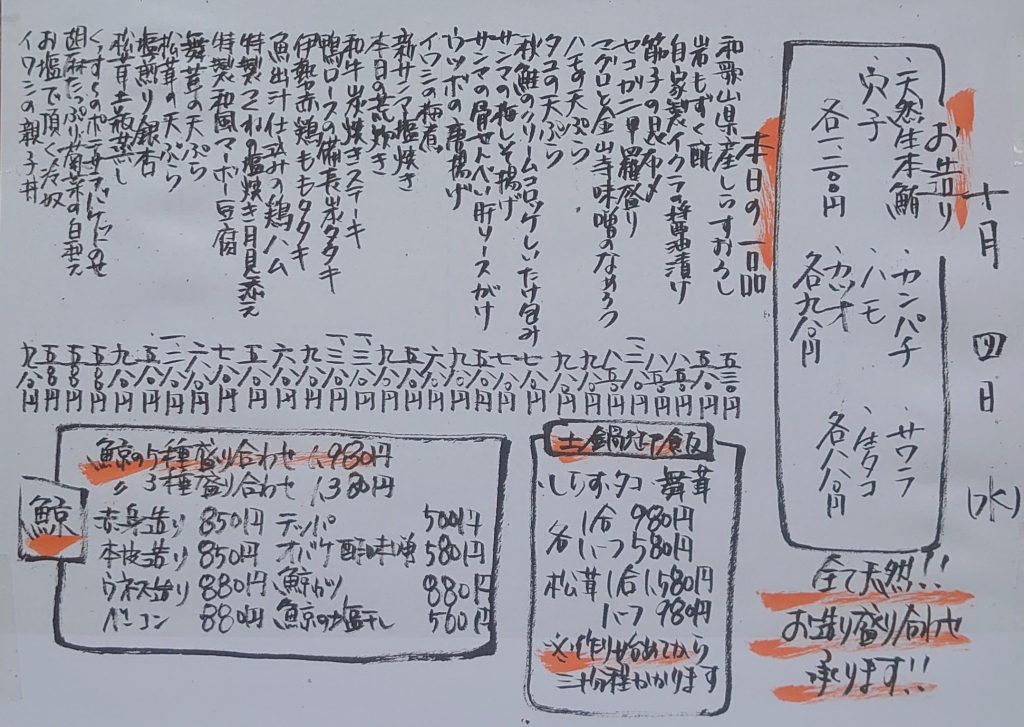 十月 四日 (水)
お造り
・天然生本鮪
・穴子
各一、二〇〇円
・カンパチ
・ハモ
・カツオ
各九八〇円
・サワラ
・生タコ
各八八〇円
全て天然!!
お造り盛り合わせ
承ります!!
本日の一品
和歌山県産しらすおろし 五三〇円
岩もずく酢 五八〇円
自家製イクラの醤油漬け 八八〇円
筋子の昆布〆
セコガニ甲羅盛り
マグロと金山寺味噌のなめろう
ハモの天ぷら 九八〇円
タコの天ぷら
秋鮭のクリームコロッケしいたけ包み
サンマの梅しそ揚げ
サンマの骨せんべい肝ソースがけ
ウツボの唐揚げ 九八〇円
イワシの梅煮 六八〇円
新サンマ塩焼き
本日の荒炊き
和牛炭焼きステーキ
鴨ロースの備長炭タタキ
伊勢赤鶏ももタタキ
魚出汁仕込みの鶏ハム 六八〇円
特製つくねの塩焼き月見添え 五八〇円
特製和風マーボー豆腐
舞茸の天ぷら
松茸の天ぷら
塩煎り銀杏 五八〇円
松茸土瓶蒸し 九八〇円
くんせいのポテサラバゲットにのせ
胡麻たっぷり菊菜の白和え
お塩で頂く冷奴
イワシの親子丼 九八〇円
土鍋炊き御飯
・しらす・タコ 舞茸
各 1合 980円
ハーフ 580円
松茸 1合 1,580円
ハーフ 980円
※作り始めてから
三十分程かかります
鯨
鯨の5種盛り合わせ 1,980円
〃 3種盛り合わせ 1,380円
赤身造り 850円 テッパ 500円
本皮造り 850円 オバケ酢味噌 580円
ウネス造り 880円 鯨ガツ 880円
ベーコン 880円 鯨のたれ塩干し 500円